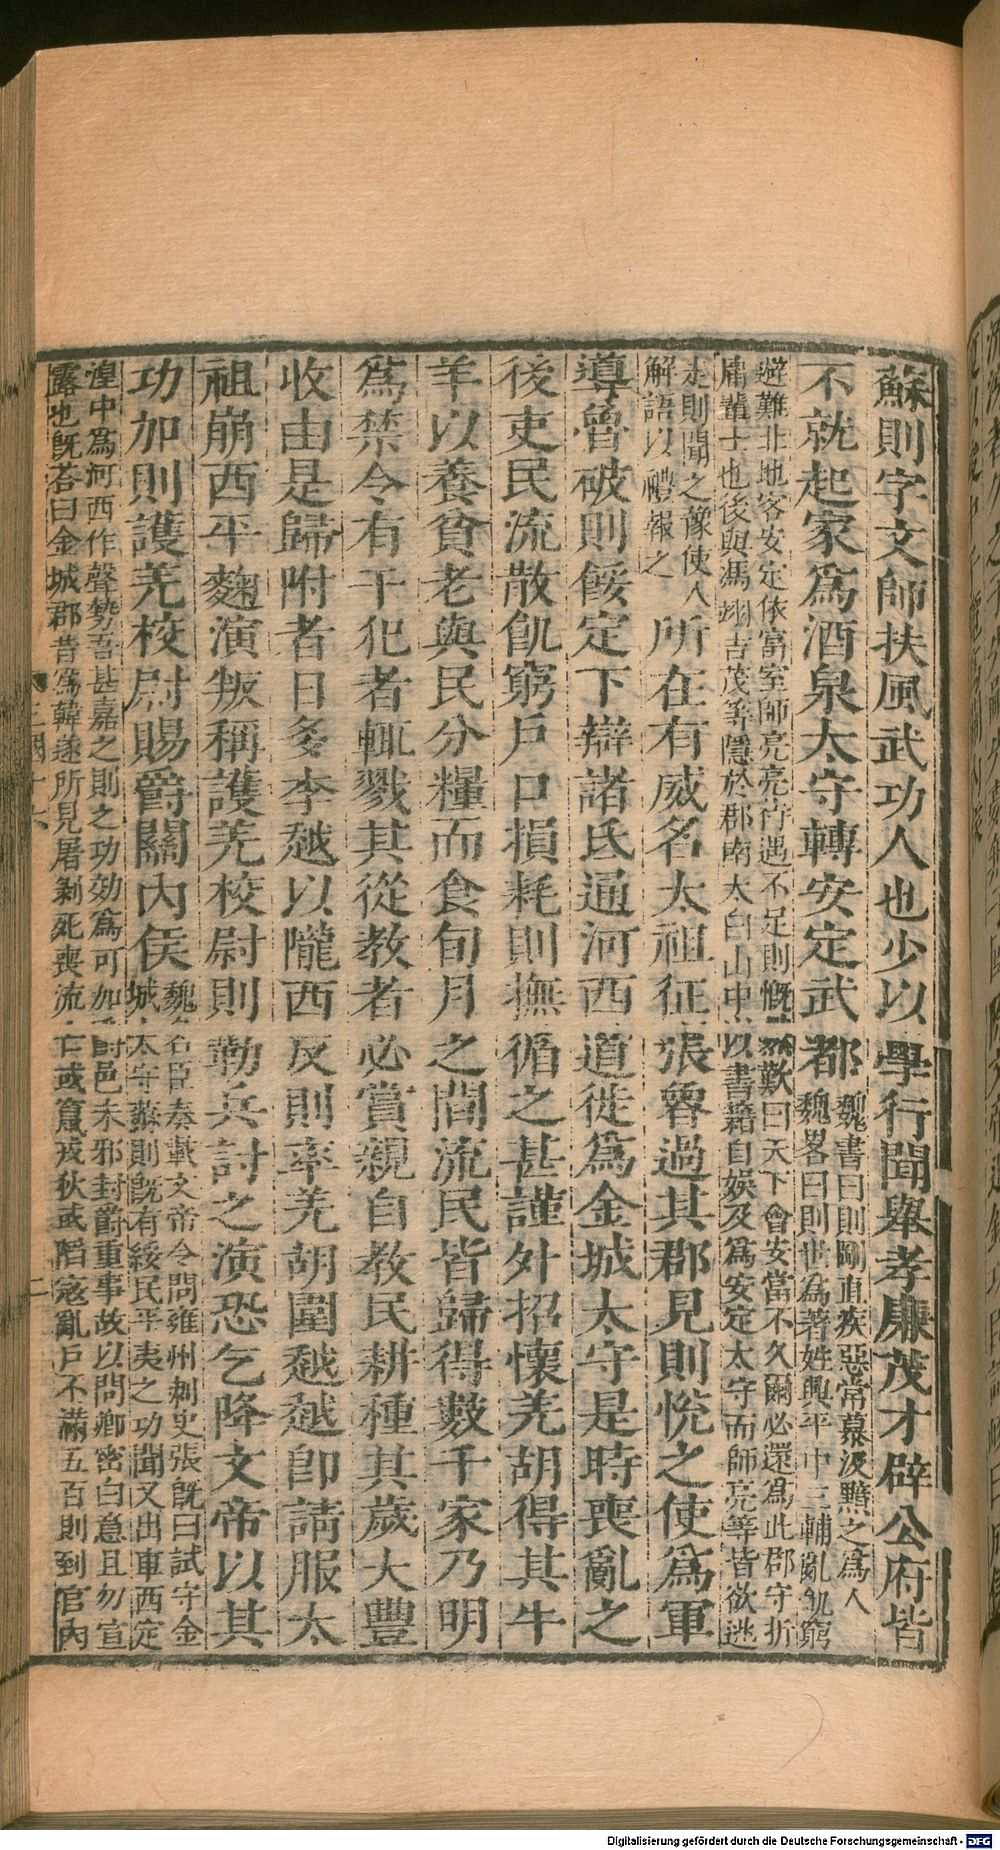 蘇則字文師扶風武功人也少以學行聞舉孝廉茂才辟公府皆
不就起家爲酒泉太守轉安定武都
魏書曰則剛直疾惡常慕汲黯之爲人
魏畧曰則世爲著姓興平中三輔亂飢窮
遊難北地客安定依富室師亮亮待遇不足則慨然歎曰天下會安當不久爾必還爲此郡守折
庸輩士也後與馮翊吉茂等隱於郡南太白山中以書籍自娱及爲安定太守而師亮等皆欲逃
走則聞之豫使人
解語以禮報之
所在有威名太祖征張魯過其郡見則悅之使爲軍
導魯破則綏定下辯諸氐通河西道徙爲金城太守是時喪亂之
後吏民流散飢窮戶口損耗則撫循之甚謹外招懷羌胡得其牛
羊以養貧老與民分糧而食旬月之間流民皆歸得數千家乃明
爲禁令有干犯者輒戮其從教者必賞親自教民耕種其歲大豐
收由是歸附者日多李越以隴西反則率羌胡圍越越卽請服太
祖崩西平麴演叛稱護羌校尉則勒兵討之演恐乞降文帝以其
功加則護羌校尉賜爵關內侯
魏名臣奏載文帝令問雍州刺史張旣曰試守金
城太守蘇則旣有綏民平夷之功聞又出軍西定
湟中爲河西作聲勢吾甚嘉之則之功効爲可加爵邑未邪封爵重事故以問卿密白意且勿宣
露也旣荅曰金城郡昔爲韓遂所見屠剝死喪流亡或竄戎狄或陷寇亂戶不滿五百則到官內
三國十六
二
Digitalisierung gefördert durch die Deutsche Forschungsgemeinschaft - DFG